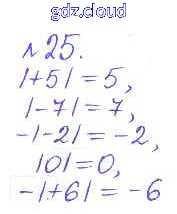 gdz.cloud
№25.
|+5|=5,
|-7|=7,
-|-2|=-2,
|0|=0,
-|+6|=-6